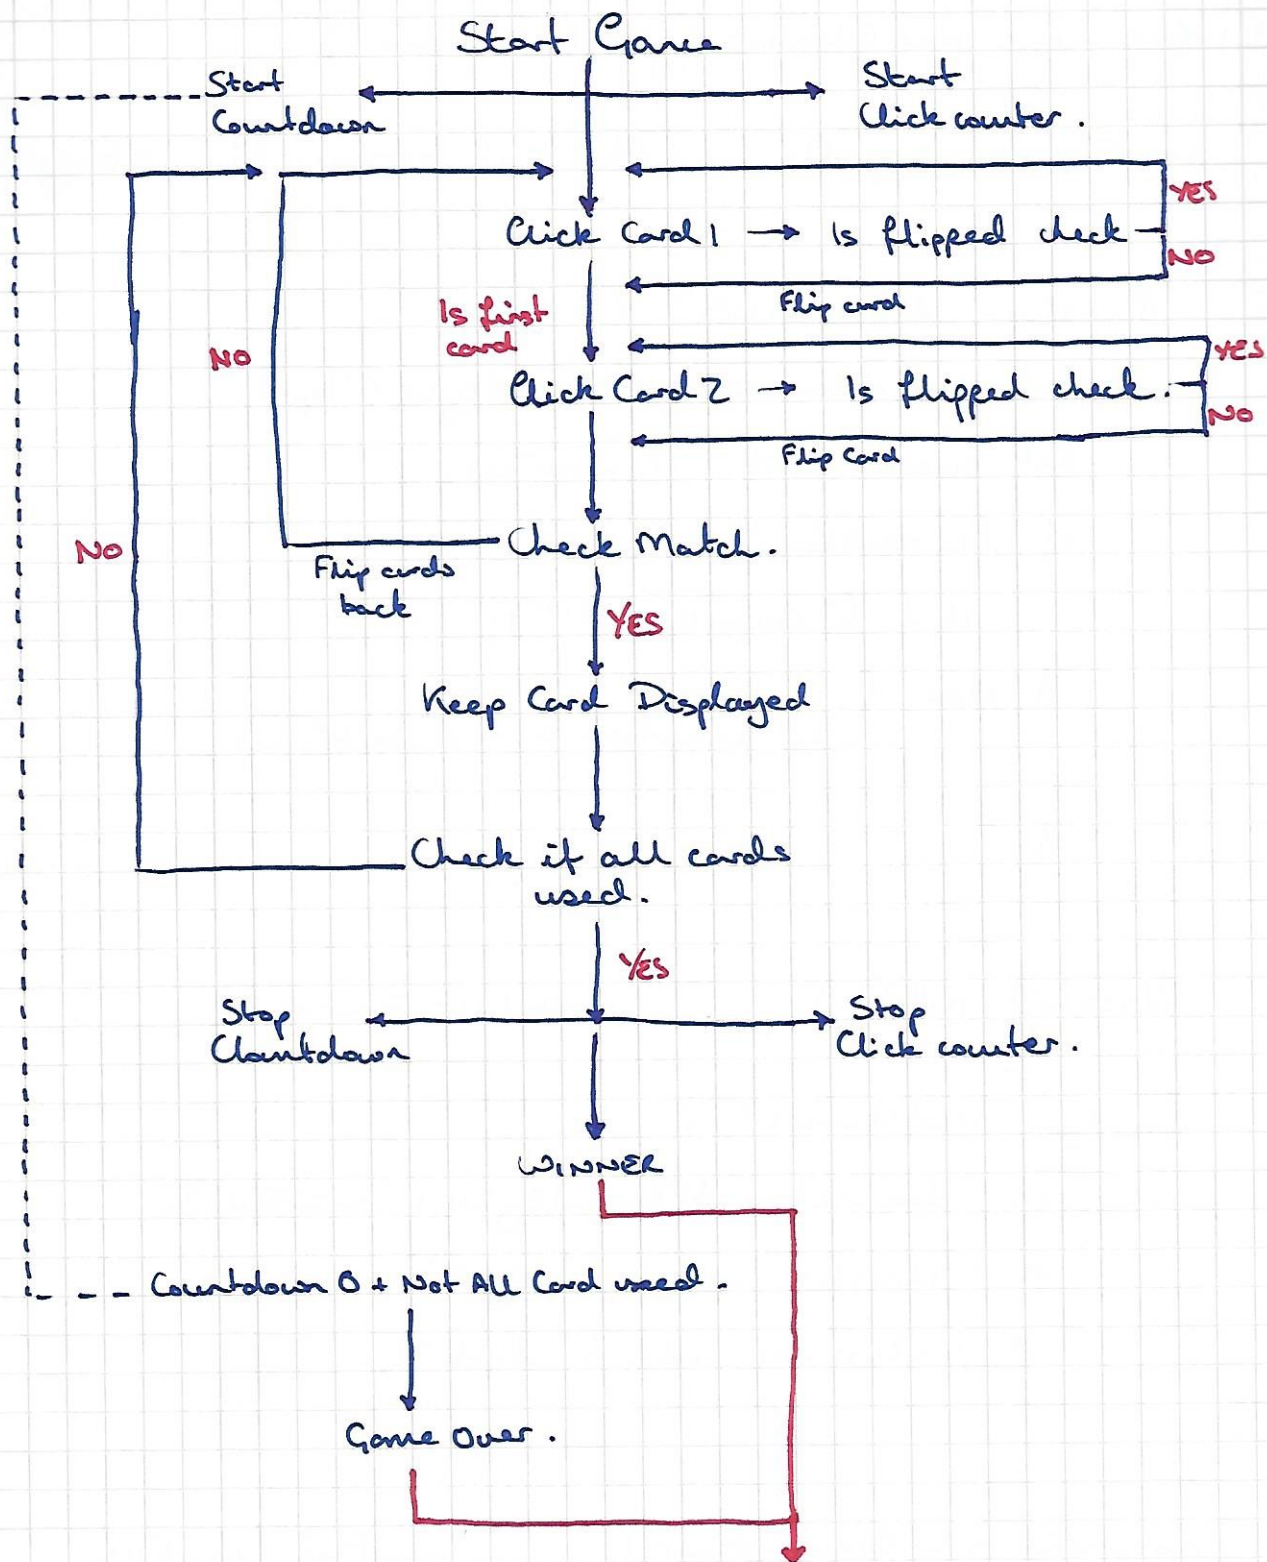 Start Game
Start
Countdown
Start
Click counter.
YES
Click Card 1 → Is flipped check
NO
Flip card
Is first
card
NO
YES
Click Card 2 → Is flipped check.
NO
Flip Card
NO
Check Match.
Flip cards
back
YES
Keep Card Displayed
Check if all cards
used.
YES
Stop
Clountdown
Stop
Click counter.
WINNER
Countdown 0 + Not All Card used.
Game Over.